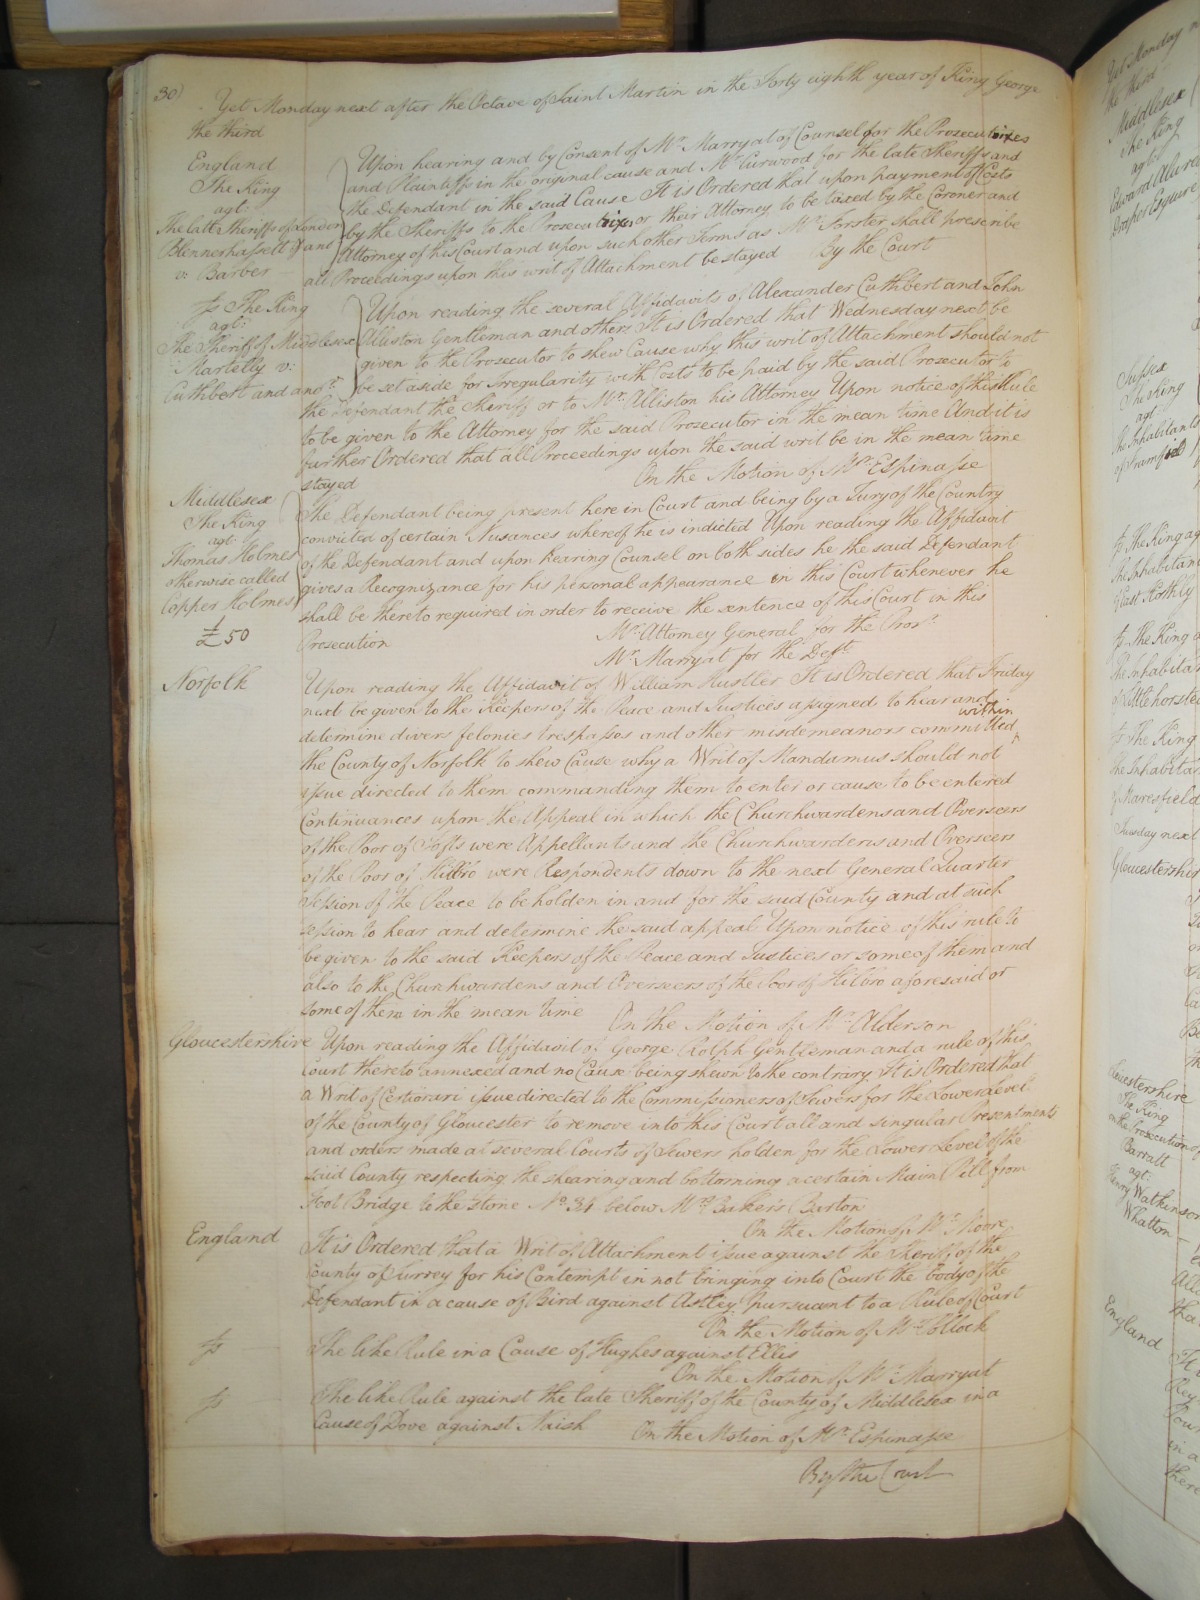 30)
Yet Monday next after the Octave of Saint Martin in the Forty eighth year of King George
the third
England
The King
agt:
The late Sheriffs of London
Blennerhassett & anr
v: Barber
Upon hearing and by Consent of Mr. Marryat of Counsel for the Prosecutrixes
and Plaintiffs in the original cause and Mr Curwood for the late Sheriffs and
the Defendant in the said Cause It is Ordered that upon payment of Costs
by the Sheriffs to the Prosecutrixes or their Attorney to be taxed by the Coroner and
Attorney of his Court and upon such other Terms as Mr Forster shall prescribe
all Proceedings upon this writ of Attachment be stayed By the Court
The King
agt:
The Sheriff of Middlesex
Martelly v:
Cuthbert and anor
Upon reading the several Affidavits of Alexander Cuthbert and John
Alliston Gentleman and others It is Ordered that Wednesday next be
given to the Prosecutor to shew Cause why this writ of Attachment should not
be set aside for Irregularity with Costs to be paid by the said Prosecutor to
the Defendant the Sheriff or to Mr. Alliston his Attorney Upon notice of this Rule
to be given to the Attorney for the said Prosecutor in the mean time And it is
further Ordered that all Proceedings upon the said writ be in the mean time
stayed On the Motion of Mr. Espinasse
Middlesex
The King
agt
Thomas Holmes
otherwise called
Copper Holmes
£50
The Defendant being present here in Court and being by a Jury of the Country
convicted of certain Nusances whereof he is indicted Upon reading the Affidavit
of the Defendant and upon hearing Counsel on both sides he the said Defendant
gives a Recognizance for his personal appearance in this Court whenever he
shall be thereto required in order to receive the sentence of this Court in this
Prosecution Mr. Attorney General for the Prosr.
Mr. Marryat for the Deft.
Norfolk
Upon reading the Affidavit of William Hustler It is Ordered that Friday
next be given to the Keepers of the Peace and Justices assigned to hear and
determine divers felonies trespasses and other misdemeanors committed within
the County of Norfolk to shew Cause why a Writ of Mandamus should not
issue directed to them commanding them to enter or cause to be entered
Continuances upon the Appeal in which the Churchwardens and Overseers
of the Poor of Tofts were Appellants and the Churchwardens and Overseers
of the Poor of Hilbro were Respondents down to the next General Quarter
Session of the Peace to be holden in and for the said County and at such
session to hear and determine the said appeal Upon notice of this rule to
be given to the said Keepers of the Peace and Justices or some of them and
also to the Churchwardens and Overseers of the Poor of Hilbro aforesaid or
some of them in the mean time On the Motion of Mr. Alderson
Gloucestershire
Upon reading the Affidavit of George Rolph Gentleman and a rule of this
Court thereto annexed and no Cause being shewn to the contrary It is Ordered that
a Writ of Certiorari issue directed to the Commissioners of Sewers for the Lower Level
of the County of Gloucester to remove into this Court all and singular Presentments
and orders made at several Courts of Sewers holden for the Lower Level of the
said County respecting the shearing and bottoming a certain Main Pill from
Foot Bridge to the stone No. 34 below Mrs Baker's Barton
On the Motion of Mr. Moore
England
It is Ordered that a Writ of Attachment issue against the Sheriff of the
County of Surrey for his Contempt in not bringing into Court the body of the
Defendant in a cause of Bird against Astley pursuant to a Rule of Court
On the Motion of Mr Pollock
The like Rule in a Cause of Hughes against Ellis
On the Motion of Mr. Marryat
The like Rule against the late Sheriff of the County of Middlesex in a
Cause of Dove against Naish On the Motion of Mr. Espinasse
By the Court
Yet Monday
the third
Middlesex
The King
agt
Sussex
The King
agt
The Inhabitants
of Framfield
The King ag
the Inhabitan
The King
the Inhabita
The King
the Inhabitan
of Maresfield
Tuesday next
Gloucestershir
Leicestershire
The King
on the Prosecution of
Barratt
agt:
Henry Watkinson
Whatton
England